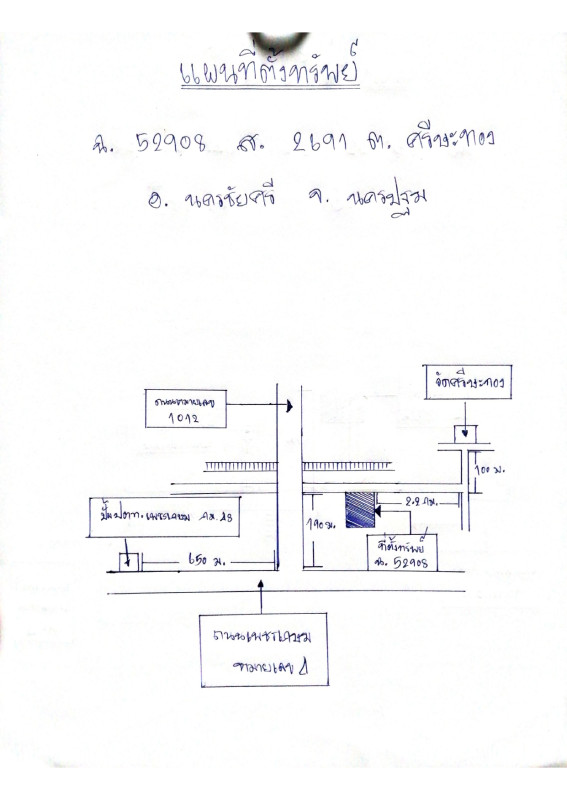 แผนที่ตั้งทรัพย์
ฉ. 52908 ส. 2691 ต. ศรีษะทอง
อ. นครชัยศรี จ. นครปฐม
วัดศรีษะทอง
ถนนหมายเลข
1012
100 ม.
2.2 กม.
ปั๊มปตท. เพชรเกษม กม. 48
190 ม.
ที่ตั้งทรัพย์
ฉ. 52908
650 ม.
ถนนเพชรเกษม
หมายเลข